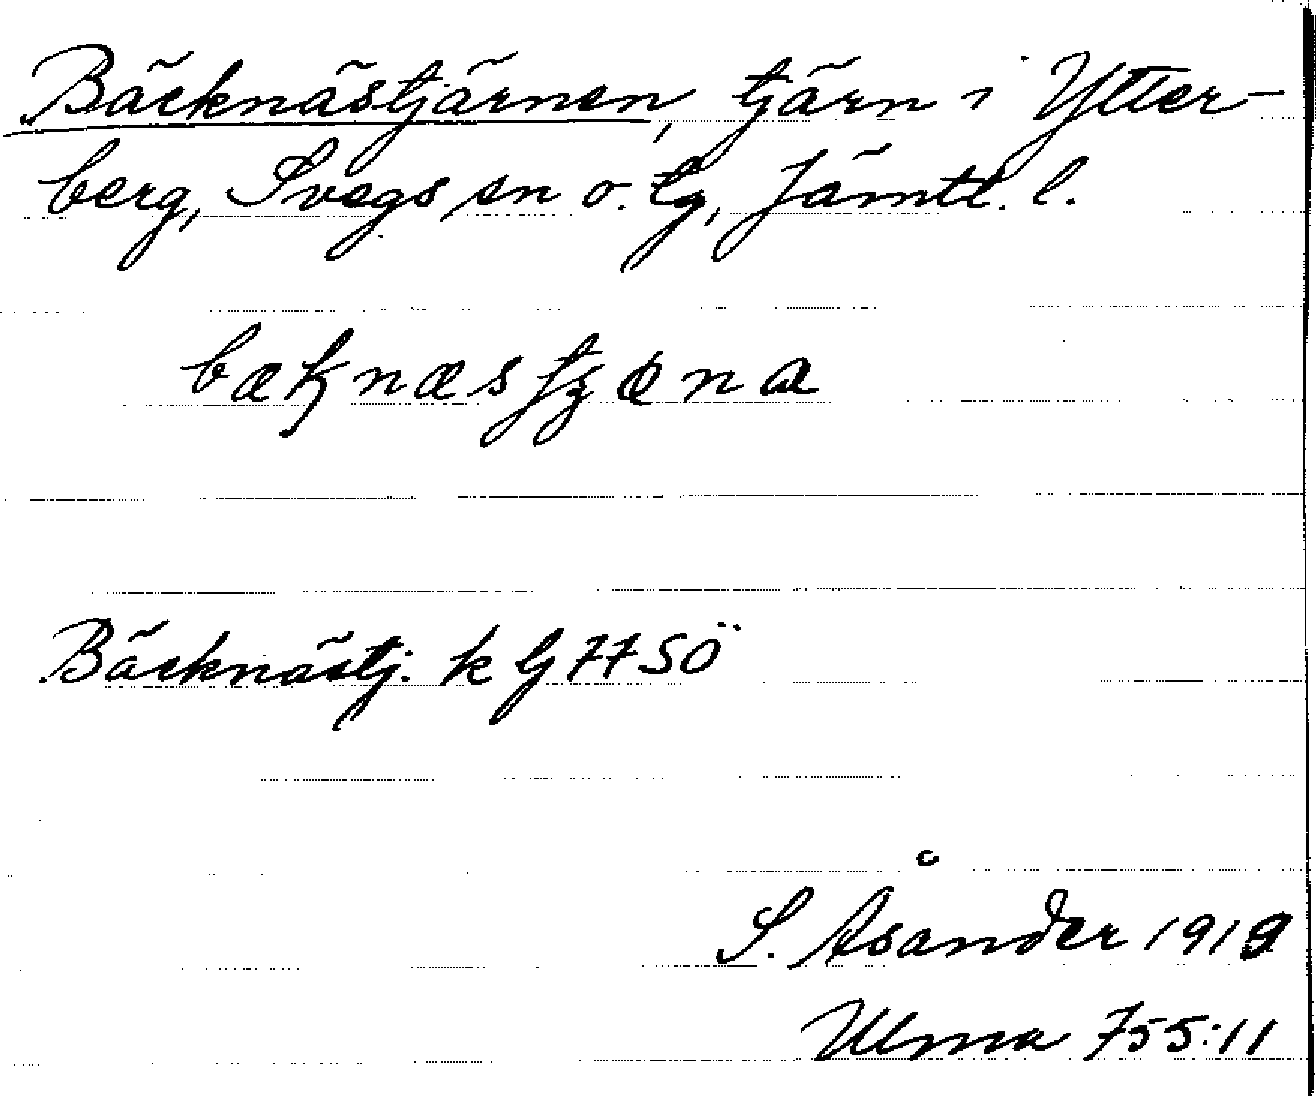 Bäcknästjärnen, tjärn i Ytter-
berg, Svegs sn o. tg, Jämtl. l.
Bäcknästj. k G 77 SÖ
S. Åsander 1919
Ulma 755:11